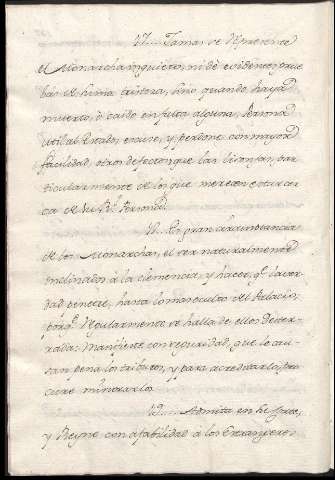 17.... Jamas se represente
el Monarcha inquieto, ni dè evidentes prue
bas de suma tristeza, sino quando haya
muerto, ò caido en falta alguna Persona
util al Estado, escuse, y perdone con mayor
facilidad, otros defectos que las lisonjas, par
ticularmente de los que merecen estar cer
ca de su Rl. Persona.
18. Es gran circunstancia
de los Monarchas, el ser naturalmente
inclinados à la clemencia, y hacer, qe. la ver
dad penetre, hasta lo mas oculto del Palacio,
porqe. regularmente se halla de ellos dester
rada: Manifieste con seguridad, que le cau
san pena los tributos, y para acreditarlo, pro
cure minorarlos.
19..... Admita en su Corte,
y Reyno con afabilidad à los Extrangeros,